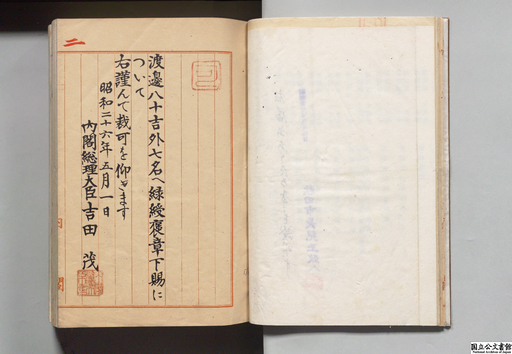 二
渡邊八十吉外七名へ緑綬褒章下賜に
ついて
右謹んで裁可を仰ぎます
昭和二十六年五月一日
内閣総理大臣吉田茂
国立公文書館
National Archives of Japan